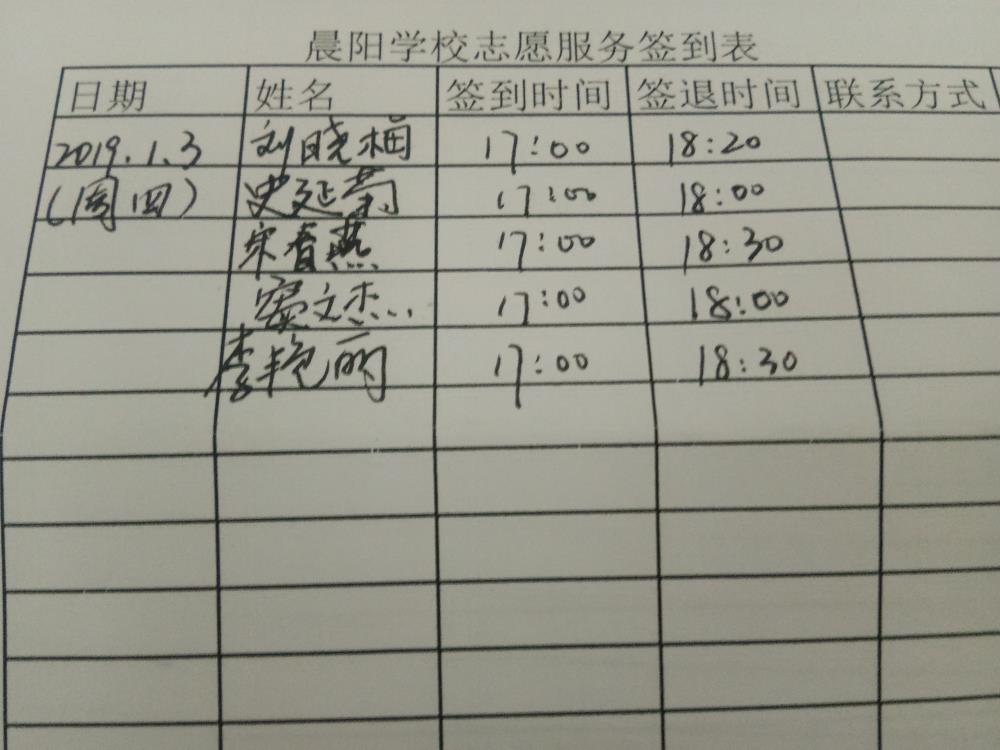 晨阳学校志愿服务签到表
日期 姓名 签到时间 签退时间 联系方式
2019.1.3 刘晓梅 17:00 18:20
(周四) 史延菊 17:00 18:00
宋春燕 17:00 18:30
窦文杰 17:00 18:00
李艳丽 17:00 18:30